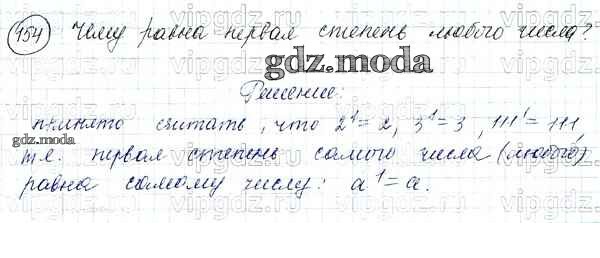 154 Чему равна первая степень любого числа?
gdz.moda
Решение:
принято считать, что 2¹=2, 3¹=3, 111¹=111,
gdz.moda
т.е. первая степень самого числа (любого)
равна самому числу: a¹=a.